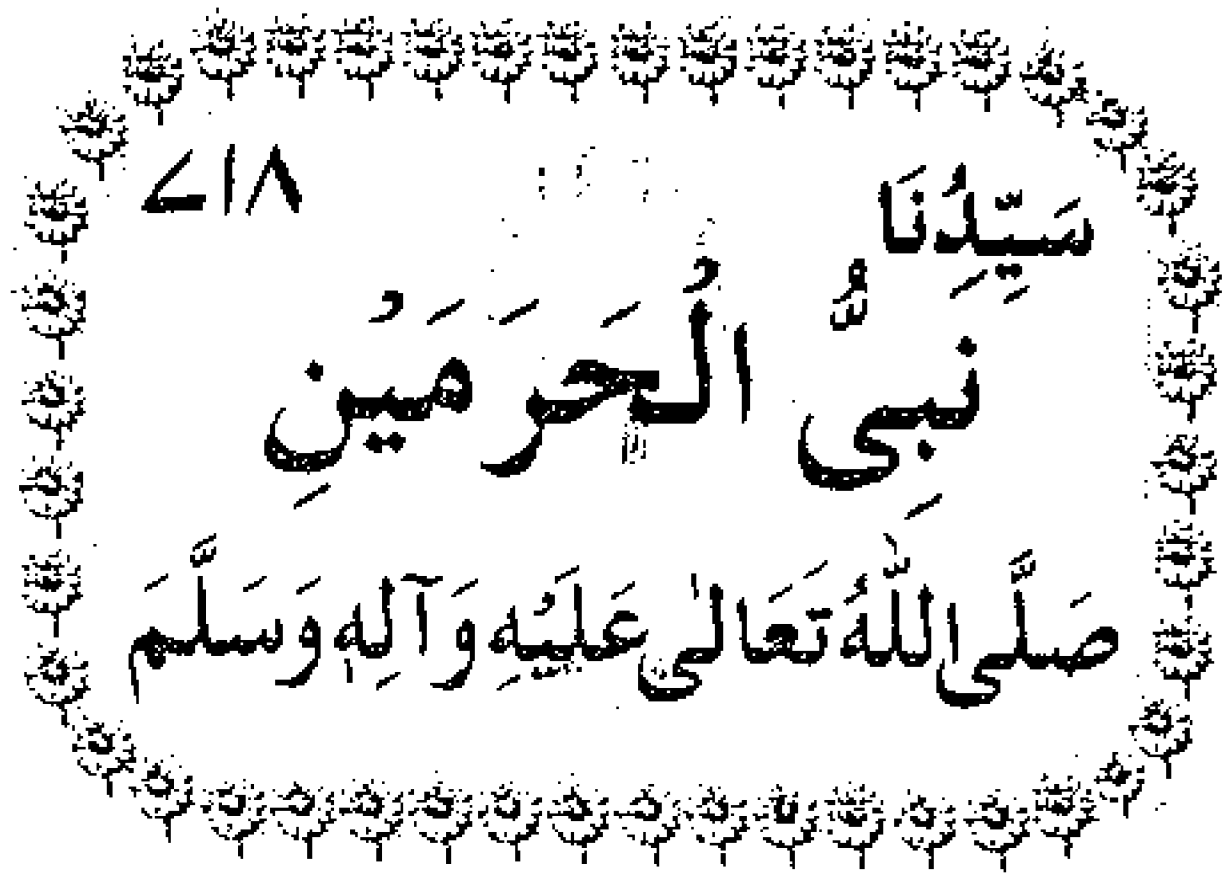 سَيِّدُنَا ۷۱۸
نَبِىُّ الْحَرَمَيْنِ
صَلَّى اللّٰهُ تَعَالٰى عَلَيْهِ وَآلِهٖ وَسَلَّمَ